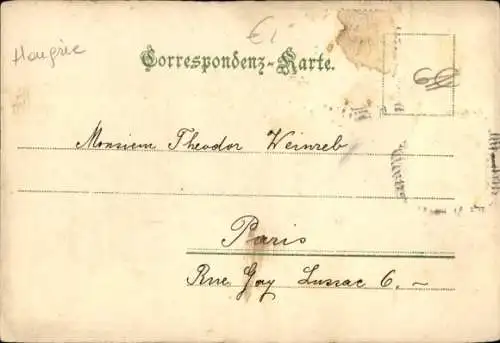 Hongrie
€1
Correspondenz-Karte.
Monsieur Theodor Weinreb
Paris
Rue Gay Lussac 6. ~